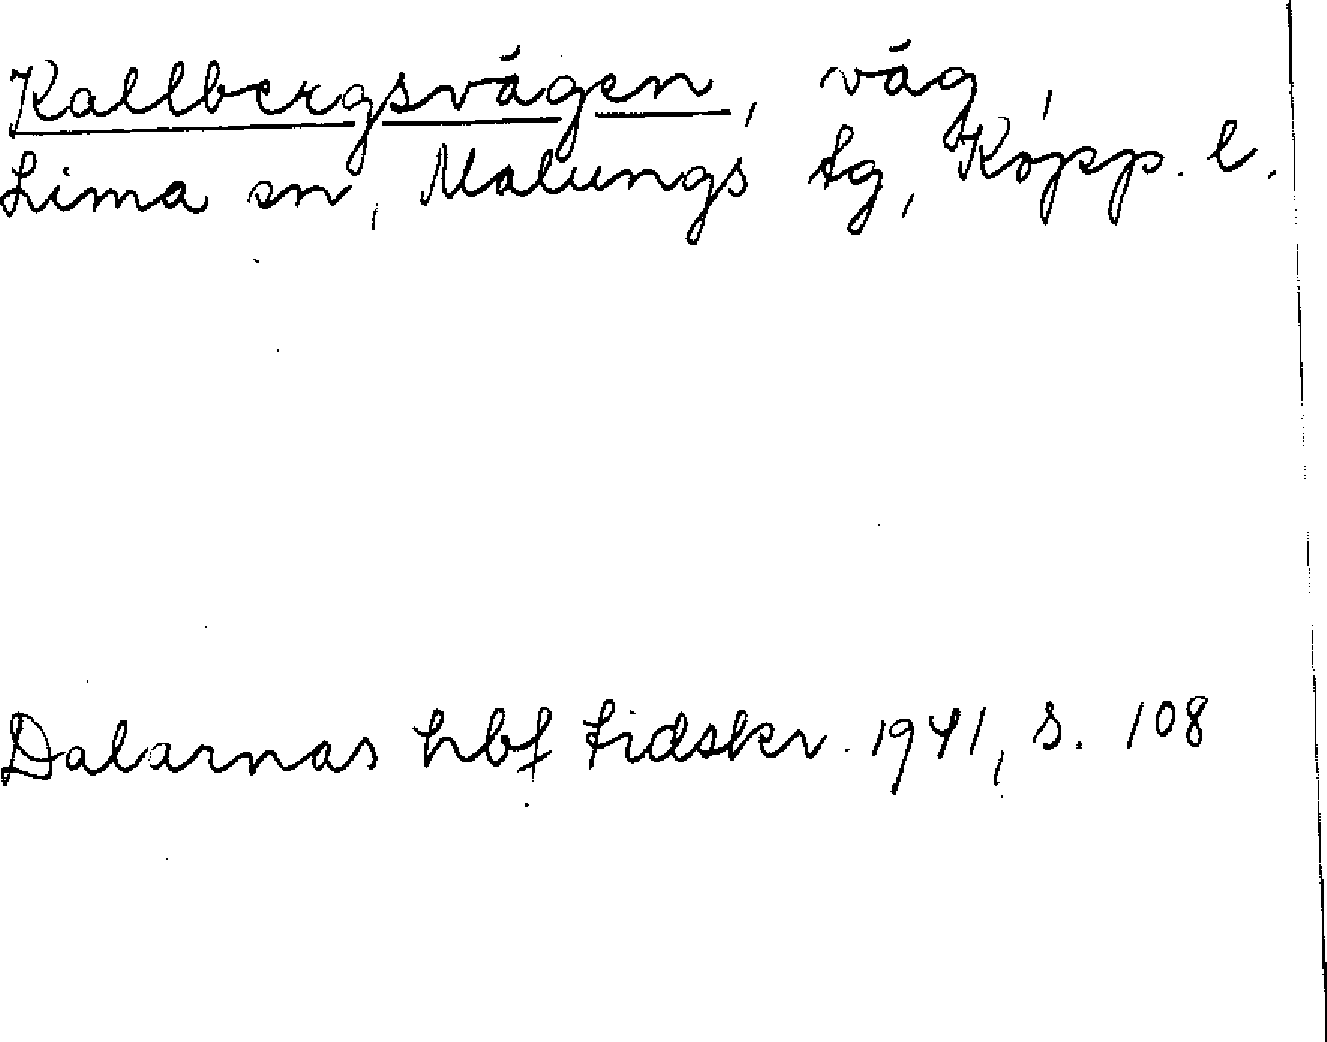 Kallbergsvägen, väg,
Lima sn, Malungs tg, Kopp. l.
Dalarnas hbf tidskr. 1941, s. 108